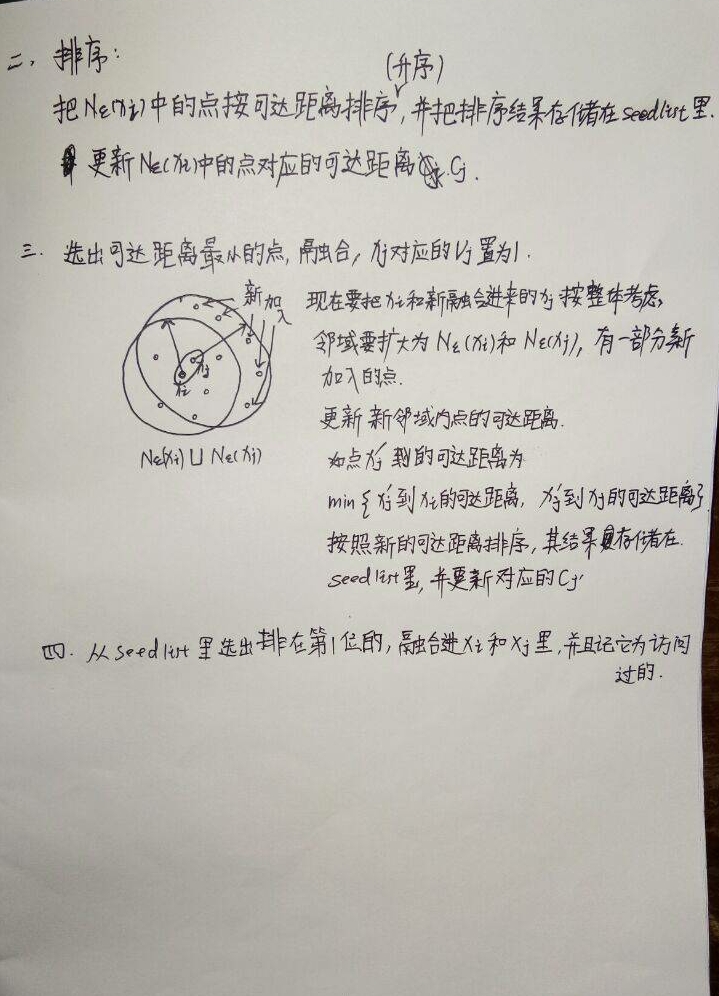 二，排序：
(升序)
把Nε(xi)中的点按可达距离排序，并把排序结果存储在seedlist里.
更新Nε(xi)中的点对应的可达距离 Cj.
三. 选出可达距离最小的点，融合，xj对应的Vj置为1.
新加入
现在要把xi和新融合进来的xj按整体考虑，
邻域要扩大为Nε(xi)和Nε(xj)，有一部分新
加入的点.
xj
xi
更新新邻域内点的可达距离.
Nε(xi)∪Nε(xj)
如点xj′到的可达距离为
min{xj′到xi的可达距离，xj′到xj的可达距离}
按照新的可达距离排序，其结果存储在
seedlist里，并更新对应的Cj′
四. 从seedlist里选出排在第1位的，融合进xi和xj里，并且记它为访问
过的.